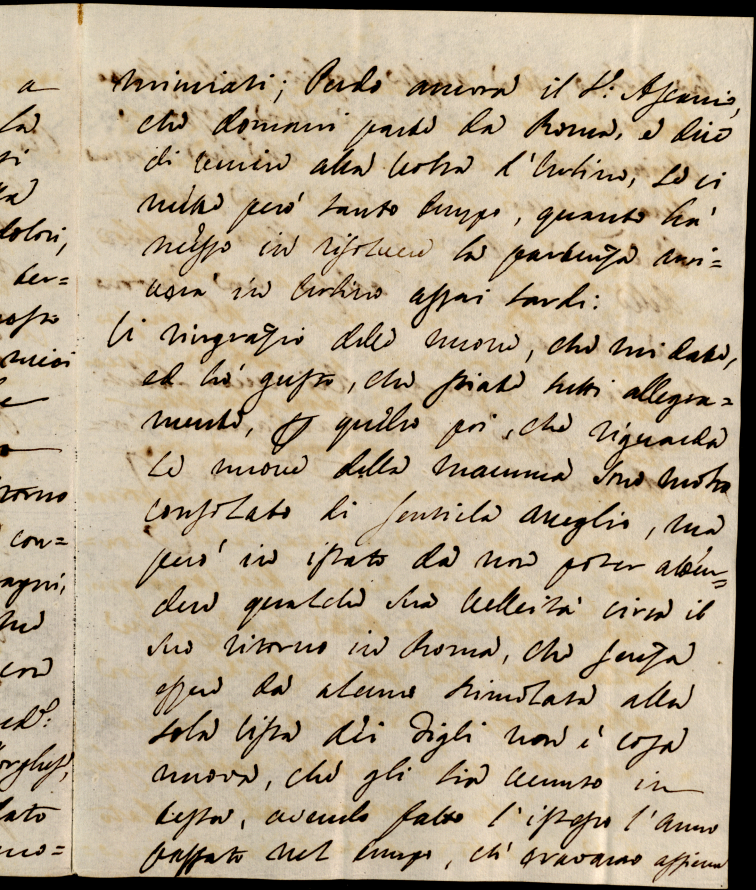 a
la
si
dolori,
ber=
nuovi
torno
con=
con
ed:
lato
mo=
minciati; Credo ancora il S.r Ascanio,
che domani parte da Roma, e dice
di venire alla volta d'Urbino, se ci
mette però tanto tempo, quanto hà
messo in risolvere la partenza arri=
verà in Urbino assai tardi:
Vi ringrazio delle nuove, che mi date,
ed hò gusto, che stiate tutti allegra=
mente, quello poi, che riguarda
le nuove della mamma sono molto
consolato di sentirla meglio, ma
però in istato da non poter atten=
dere qualche sua velleità circa il
suo ritorno in Roma, che senza
essere da alcuno stimolata alla
sola vista dei figli non è cosa
nuova, che gli sia venuto in
testa, avendo fatto l'istesso l'anno
passato nel tempo, ch'eravamo assieme